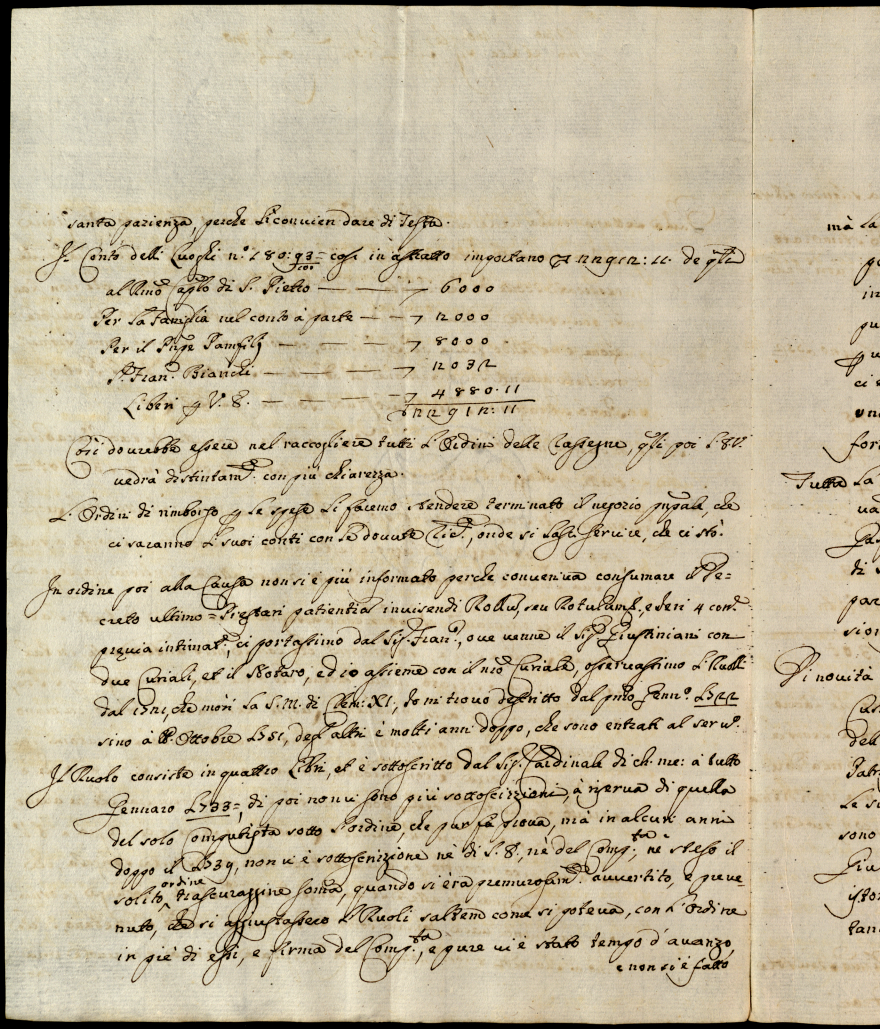 santa pazienza, perche li convien dare di Testa.
Il Conto delli Luoghi n.º 180:93 così in astratto importano 22912:11. de qsti
al Rmo Caplo di S. Pietro — — — 6000
Per la famiglia nel conto à parte — — 12000
Per il Pnpe Pamfilj — — — 8000
Sr. Fran. Bianchi — — — 1032
Liberi p V. E. — — — 4880.11
22912:11
Così dovrebbe essere nel raccogliere tutti l'Ordini delle Rassegne, qsti poi
vedrà distintamte con più chiarezza.
L'Ordini di rimborso p le spese li faremo rendere terminato il negozio pnpale, che
ci saranno li suoi conti con le dovute, onde si lasci servire, che ci stò.
In ordine poi alla Causa non si è più informato perche conveniva consumare il De=
creto ultimo = Prestari patientia invisendi Rollum, seu Rotulum, e hieri 4 corr.
previa intimat.e, ci portassimo dal Sig. Fran.º, ove venne il Sig. Giustiniani con
due Curiali, et il Notaro, ed io assieme con il mio Curiale, osservassimo li Ruoli
dal 1721, che morì la S. M. di Clem: XI, Io mi trovo descritto dal pmo Genn.º 1722
sino à Ottobre 1751, degl'altri è molti anni doppo, che sono entrati al serv.º
Il Ruolo consiste in quattro Libri, et è sottoscritto dal Sig. Cardinale di ch: me: à tutto
Gennaro 1733=, di poi non vi sono più sottoscrizzioni, à riserva di quella
del solo Computista sotto l'ordine, che pur fà prova, mà in alcuni anni
doppo il 1739, non vi è sottoscrizione nè di S. E., nè del Comp:ta, nè steso il
solito ordine, trascuraggine somma, quando si era premurosamte avvertito, e preve
nuto, che si aggiustassero li Ruoli saltem come si poteva, con l'ordine
in piè di essi, e firma del Comp:ta, e pure vi è stato tempo d'avanzo,
e non si è fatto
mà la
in
ci
Tutta la
di
sion
Di novità
dell
le
sono